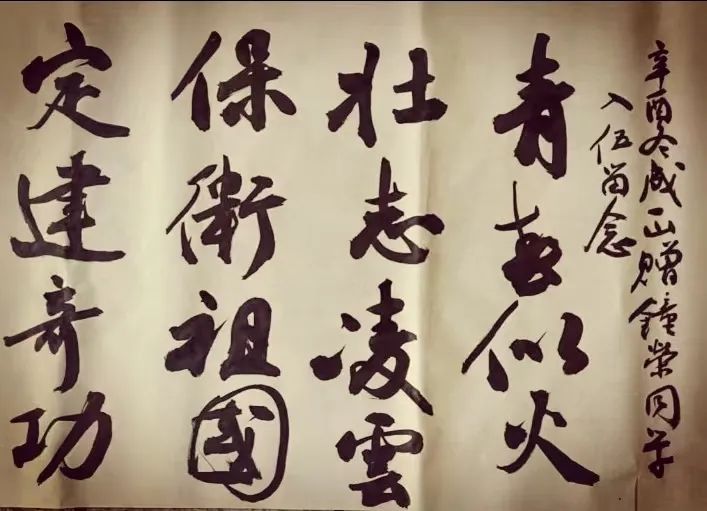 辛酉冬成山赠鐘荣同学
入伍留念
青春似火
壮志凌雲
保衛祖國
定建奇功